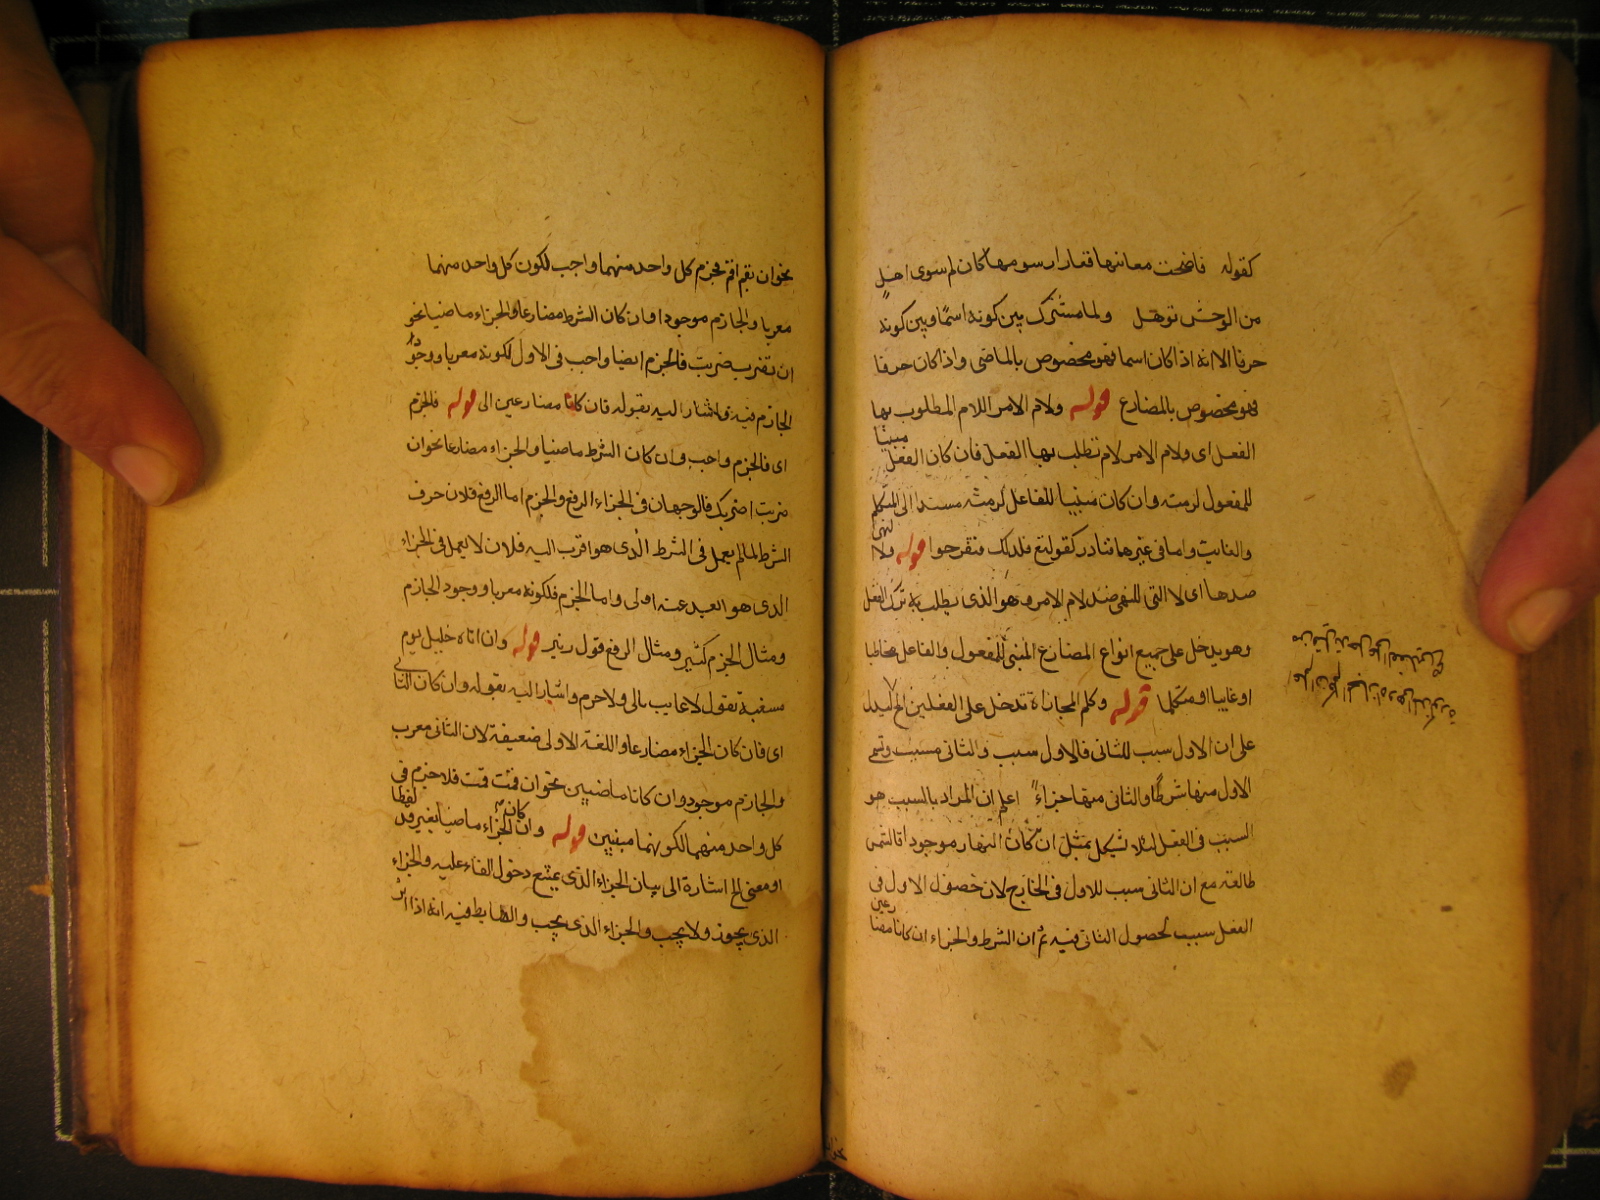 كقوله فاضحت معانيها قفارا رسومها كان لم سوى اهل
من الوحش توهل ولما مشترك بين كونه اسما وبين كونه
حرفا الا انه اذا كان اسما فهو مخصوص بالماضى واذا كان حرفا
فهو مخصوص بالمضارع قوله ولام الامر اللام المطلوب بها
الفعل اى ولام الامر لام تطلب بها الفعل فان كان الفعل مبنيا
للمفعول لزمته وان كان مبنيا للفاعل لزمته مسندا الى المتكلم
والغايب واما فى غيرهما فنادر كقوله تع فلذلك فلتفرحوا قوله ولا النهى
ضدها اى لا التى للنهى ضد لام الامر وهو الذى يطلب به ترك الفعل
وهو يدخل على جميع انواع المضارع المبنى للمفعول والفاعل مخاطبا
او غايبا او متكلما قوله وكلم المجازاة تدخل على الفعلين الخ ليدل
على ان الاول سبب للثانى فالاول سبب والثانى مسبب وتسمى
الاول منها شرطا والثانى منها جزاء اعلم ان المراد بالسبب هو
السبب فى الفعل لئلا يشكل بمثل ان كان النهار موجودا فالشمس
طالعة مع ان الثانى سبب للاول فى الخارج لان حصول الاول فى
الفعل سبب لحصول الثانى فيه ثم ان الشرط والجزاء ان كانا مضارعين
نحو ان تقم اقم فجزم كل واحد منهما واجب لكون كل واحد منهما
معربا والجازم موجودا وان كان الشرط مضارعا والجزاء ماضيا نحو
ان تضرب ضربت فالجزم ايضا واجب فى الاول لكونه معربا ووجود
الجازم فيه واشار اليه بقوله فان كانا مضارعين الى قوله فالجزم
اى فالجزم واجب وان كان الشرط ماضيا والجزاء مضارعا نحو ان
ضربت اضربك فالوجهان فى الجزاء الرفع والجزم اما الرفع فلان حرف
الشرط لما لم يعمل فى الشرط الذى هو اقرب اليه فلان لا يعمل فى الجزاء
الذى هو ابعد عنه اولى واما الجزم فلكونه معربا ووجود الجازم
ومثال الجزم كثير ومثال الرفع قول زهير قوله وان اتاه خليل يوم
مسغبة يقول لا غايب مالى ولا حرم واشار اليه بقوله وان كان الثانى
اى فان كان الجزاء مضارعا واللغة الاولى ضعيفة لان الثانى معرب
والجازم موجود وان كانا ماضيين نحو ان قمت قمت فلا جزم فى
كل واحد منهما لكونهما مبنيين قوله وان كان الجزاء ماضيا بغير قد لفظا
او معنى الخ اشارة الى بيان الجزاء الذى يمتنع دخول الفاء عليه والجزاء
الذى يجوز ولا يجب والجزاء الذى يجب والضابط فيه انه اذا اثر